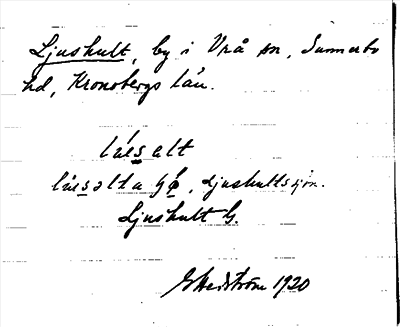 Ljushult, by i Vrå sn, Sunnerbo
hd, Kronobergs län.
Ljushultssjön.
Ljushult G.
GHedström 1920